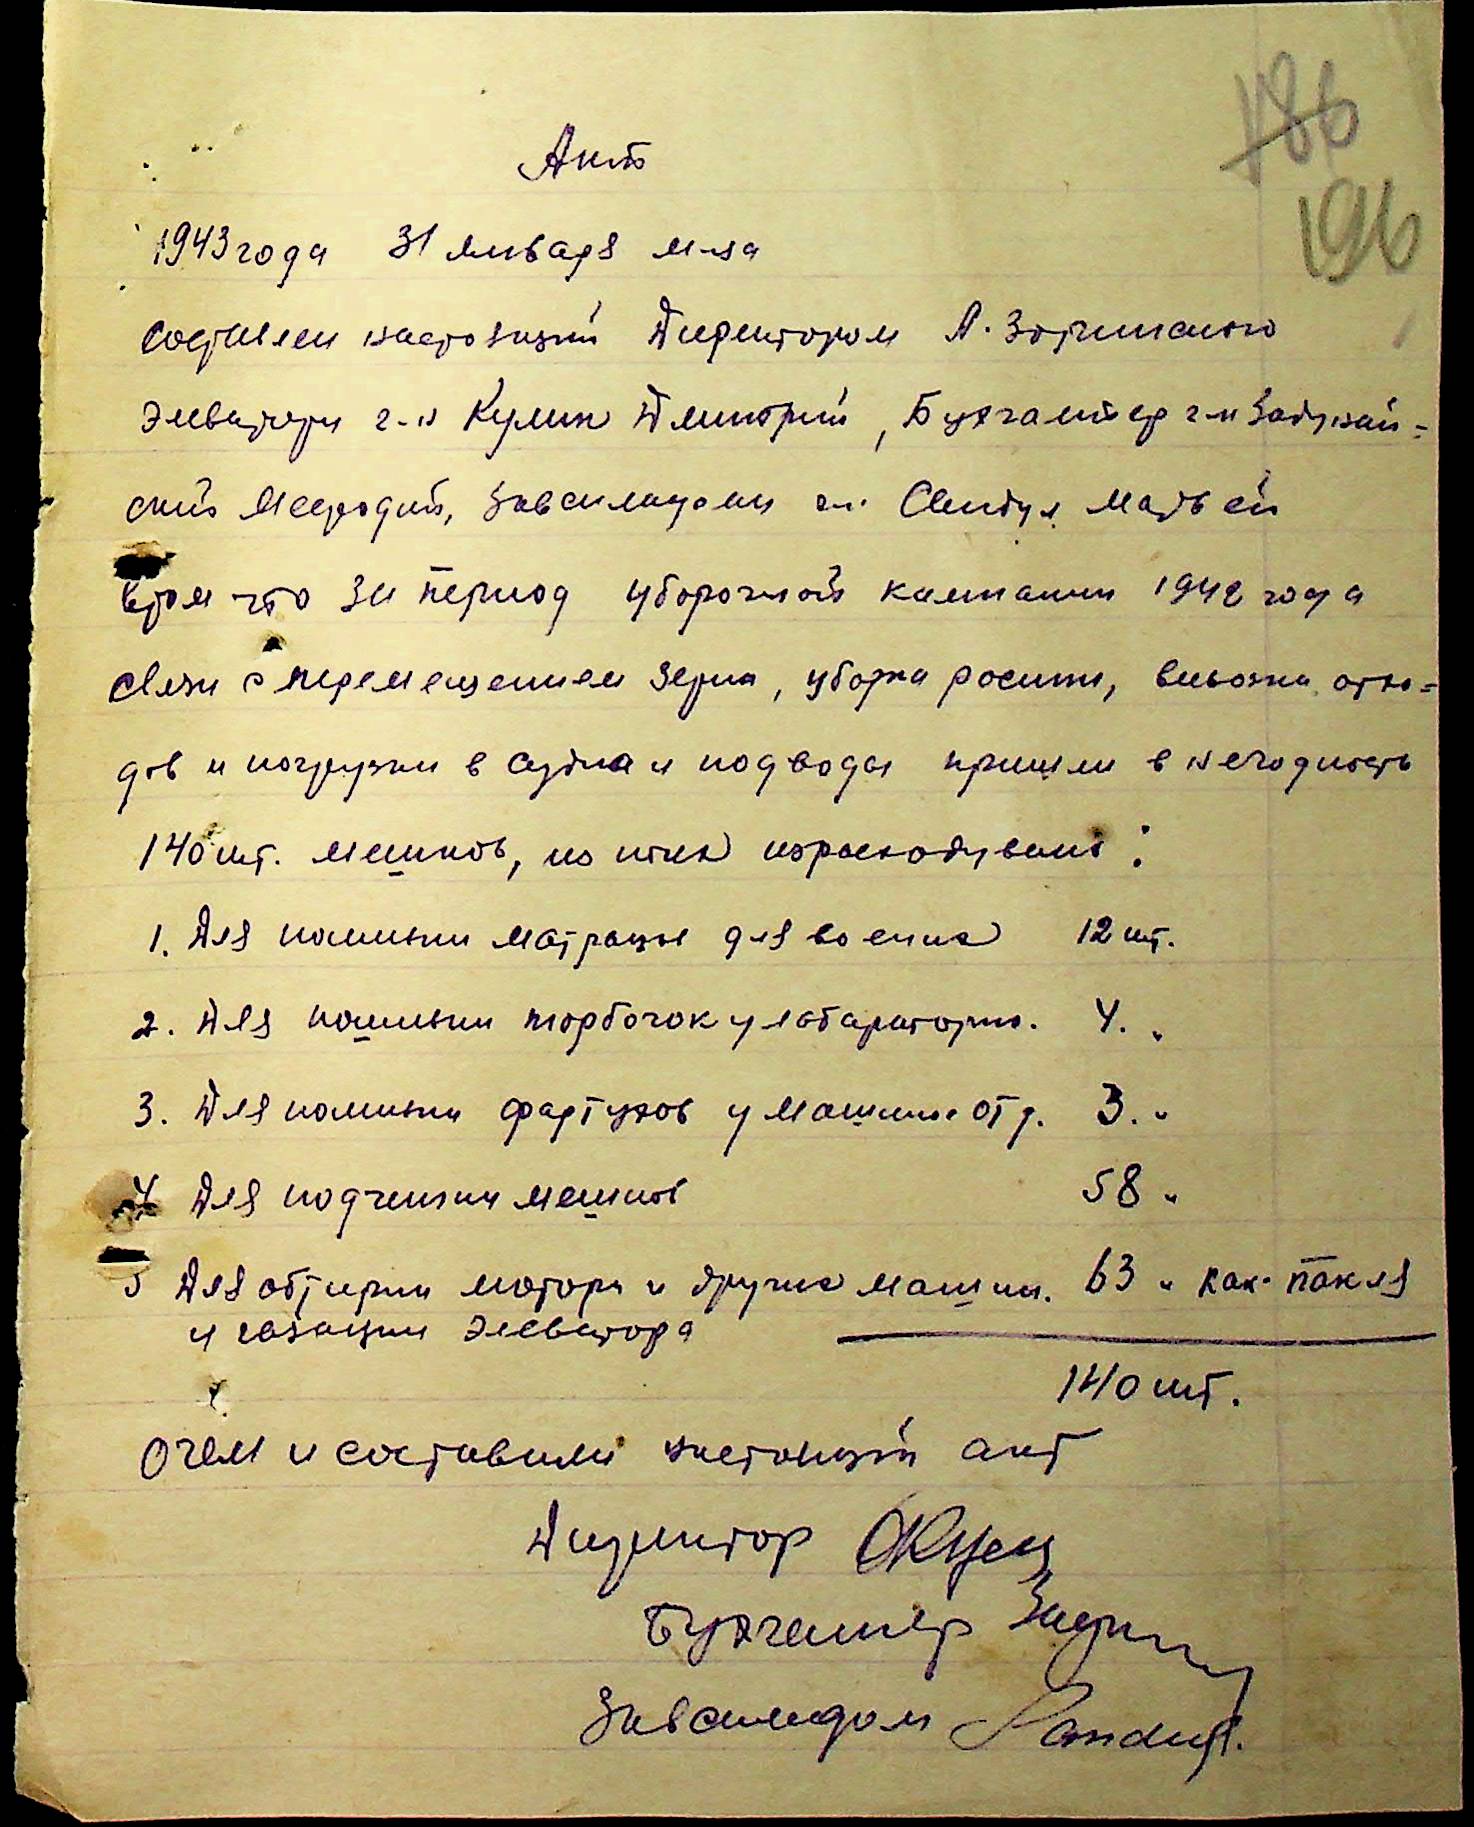 186
196
Актъ
1943 года 31 января м-ца
Составлен настоящий Директором А. Затишского
Элеватора г-н Кулик Дмитрий, Бухгалтер г-н Задунай=
ский Мефодий, Завскладом г-н Матвей
в том что за период уборочной кампании 1942 года
связи с перемещением зерна, уборка россыпи, вывозки отхо=
дов и погрузки в судна и подводы пришли в негодность
140 шт. мешков, из них израсходувано:
1. Для пошивки матрацы для военных 12 шт.
2. Для пошивки торбочок у лабараторию. 4. "
3. Для пошивки фартухов у машин. отд. 3. "
4 Для подчепки мешков 58 "
5 Для обтирки мотора и других машин. 63 " как пакля
и елеватора
140 шт.
О чем и составили настоящий акт
Директор
Бухгалтер
Завскладом